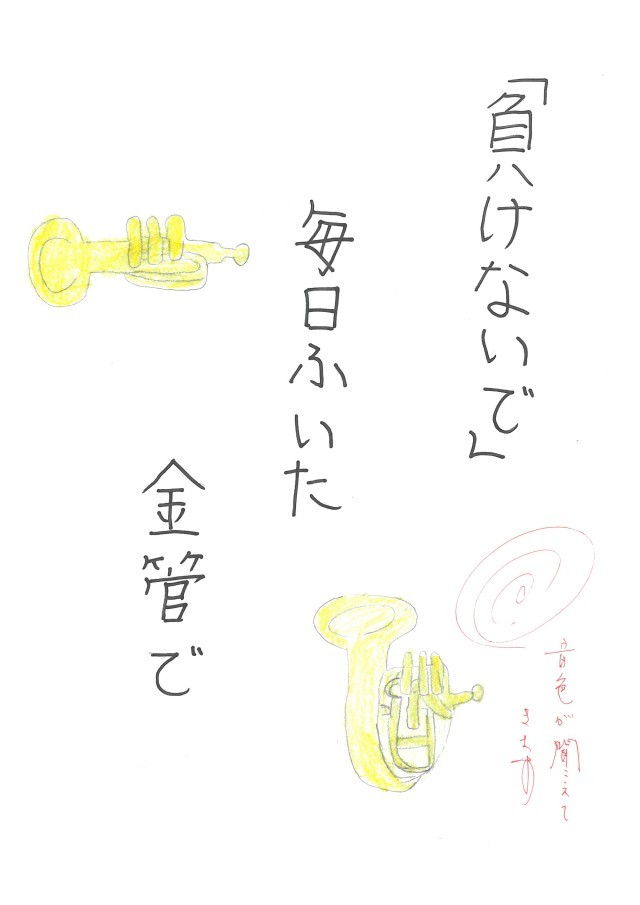 「負けないで」
毎日ふいた
金管で
音色が聞こえて
きます